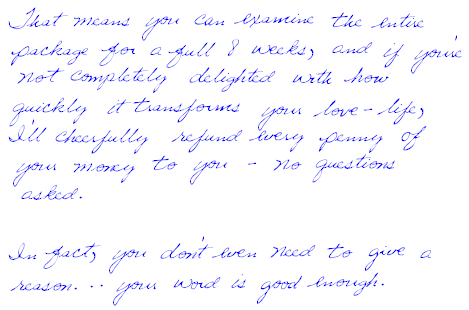 That means you can examine the entire
package for a full 8 weeks, and if you're
not completely delighted with how
quickly it transforms your love-life,
I'll cheerfully refund every penny of
your money to you - no questions
asked.
In fact, you don't even need to give a
reason... your word is good enough.